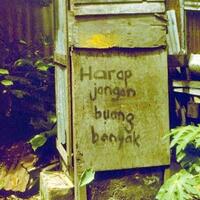 Harap
jangan
buang
banyak